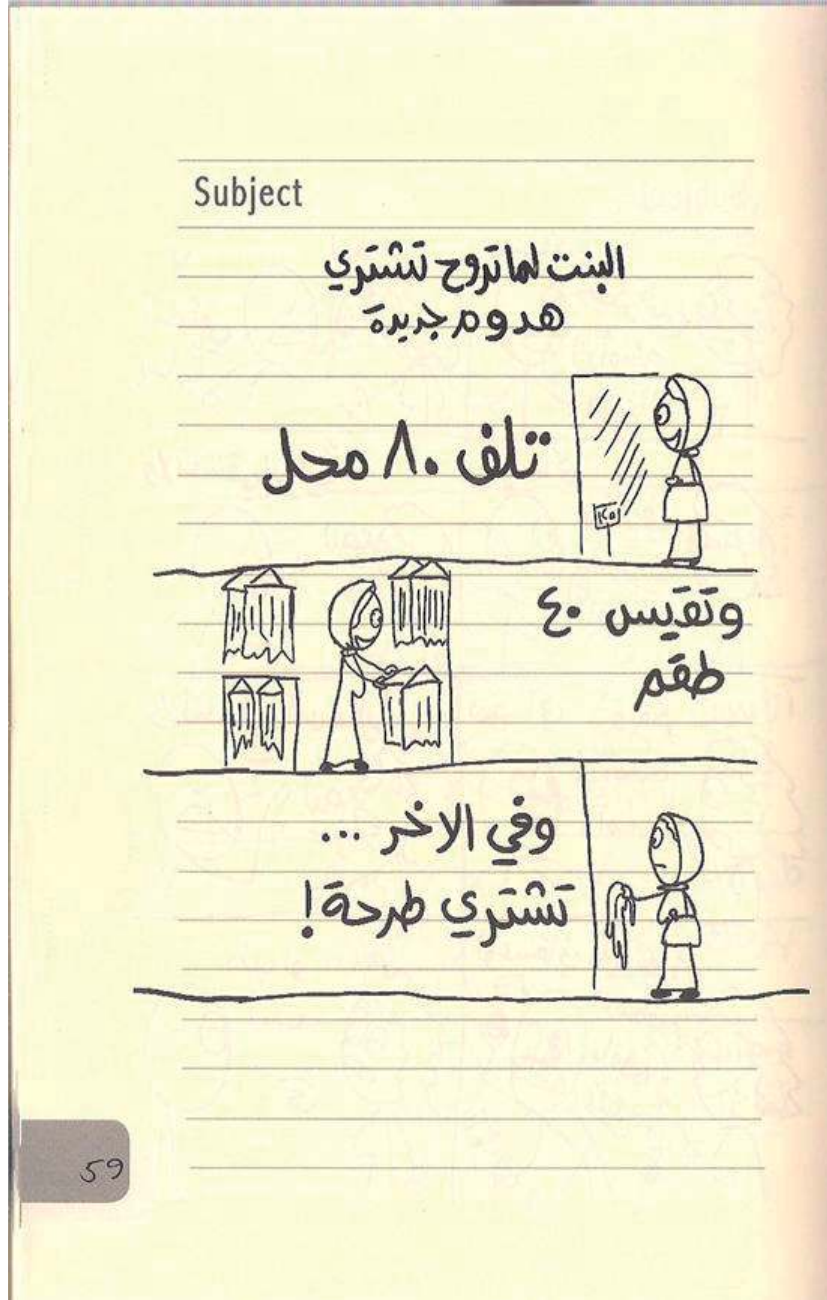 Subject
البنت لما تروح تشتري
هدوم جديدة
تلف ٨٠ محل
وتقيس ٤٠
طقم
وفي الاخر ...
تشتري طرحة!
59